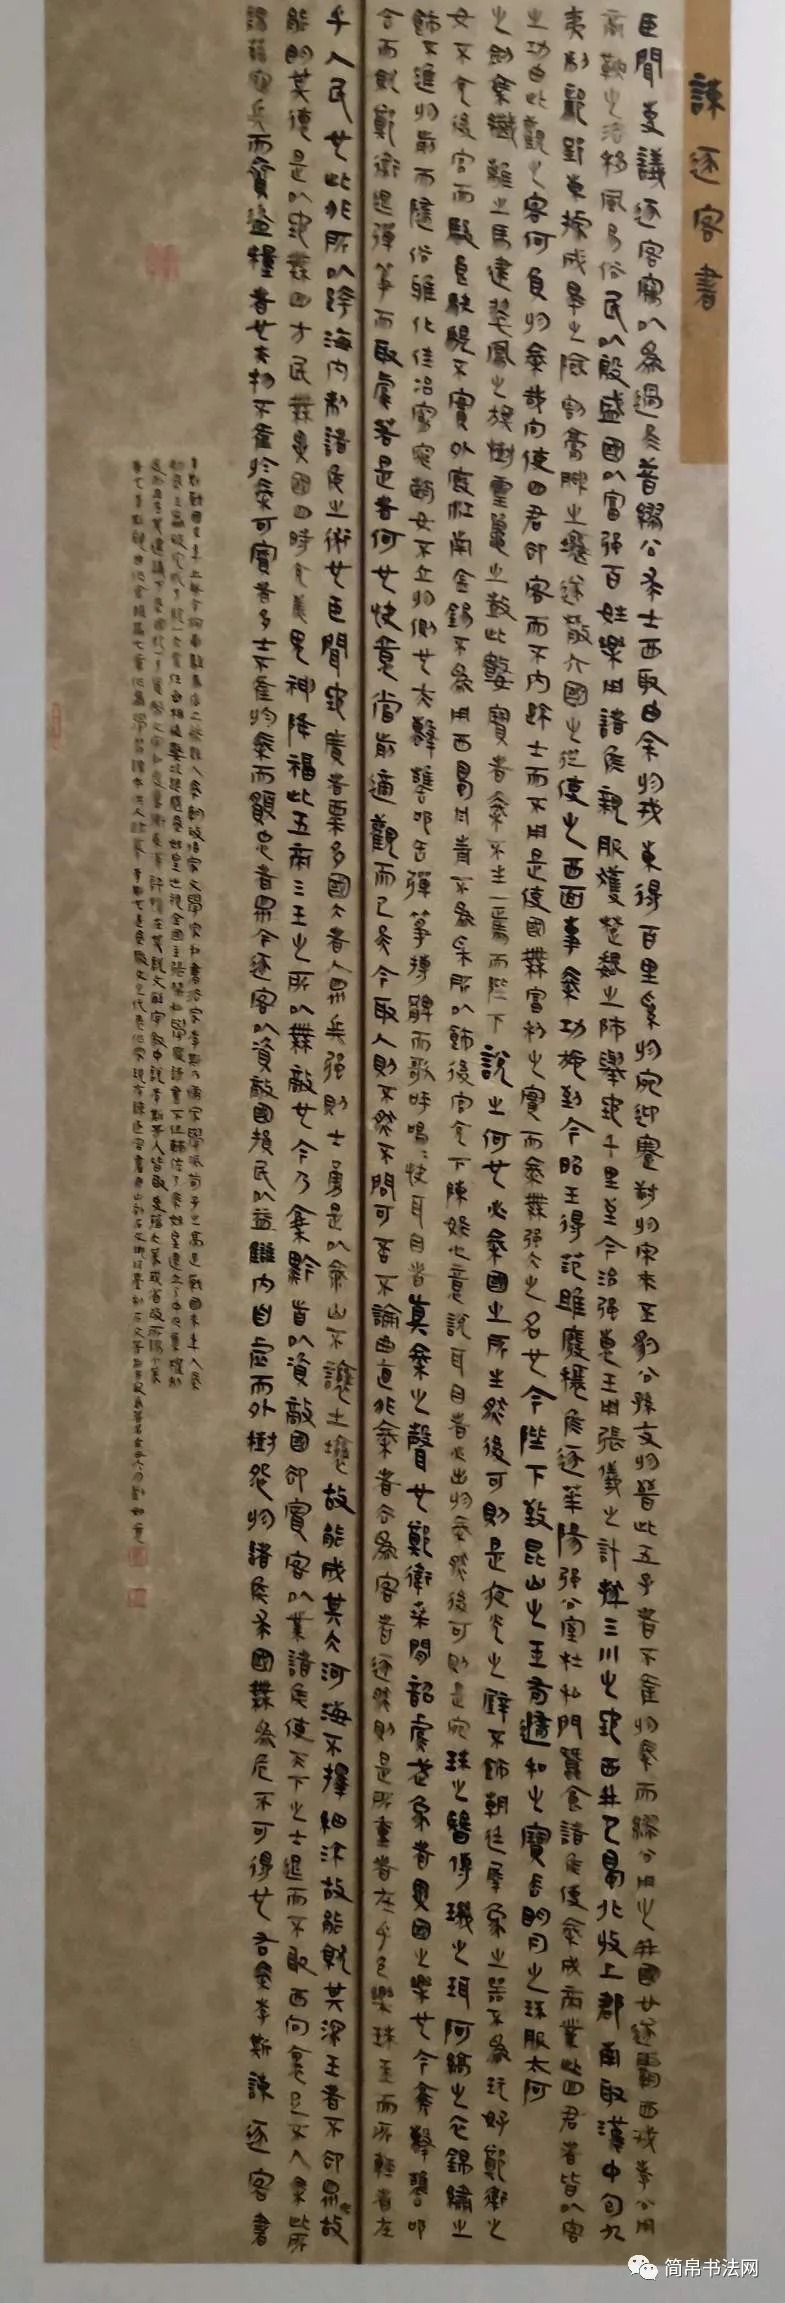 諫逐客書
臣聞吏議逐客竊以為過矣昔繆公求士西取由余於戎東得百里奚於宛迎蹇叔於宋來丕豹公孫支於晉此五子者不產於秦而繆公用之并國廿遂霸西戎孝公用
商鞅之法移風易俗民以殷盛國以富強百姓樂用諸侯親服獲楚魏之師舉地千里至今治強惠王用張儀之計拔三川之地西并巴蜀北收上郡南取漢中包九
夷制鄢郢東據成皋之險割膏腴之壤遂散六國之從使之西面事秦功施到今昭王得范雎廢穰侯逐華陽強公室杜私門蠶食諸侯使秦成帝業此四君者皆以客
之功由此觀之客何負於秦哉向使四君卻客而不內疏士而不用是使國無富利之實而秦無強大之名也今陛下致昆山之玉有隨和之寶垂明月之珠服太阿
之劍乘纖離之馬建翠鳳之旗樹靈鼉之鼓此數寶者秦不生一焉而陛下說之何也必秦國之所生然後可則是夜光之璧不飾朝廷犀象之器不為玩好鄭衛之
女不充後宮而駿良駃騠不實外廄江南金錫不為用西蜀丹青不為采所以飾後宮充下陳娛心意說耳目者必出於秦然後可則是宛珠之簪傅璣之珥阿縞之衣錦繡之
飾不進於前而隨俗雅化佳冶窈窕趙女不立於側也夫擊甕叩缶彈箏搏髀而歌呼嗚嗚快耳目者真秦之聲也鄭衛桑間韶虞武象者異國之樂也今棄擊甕叩
缶而就鄭衛退彈箏而取虞若是者何也快意當前適觀而已矣今取人則不然不問可否不論曲直非秦者去為客者逐然則是所重者在乎色樂珠玉而所輕者在
乎人民也此非所以跨海內制諸侯之術也臣聞地廣者粟多國大者人眾兵強則士勇是以泰山不讓土壤故能成其大河海不擇細流故能就其深王者不卻眾庶故
能明其德是以地無四方民無異國四時充美鬼神降福此五帝三王之所以無敵也今乃棄黔首以資敵國卻賓客以業諸侯使天下之士退而不敢西向裹足不入秦此所
謂藉寇兵而齎盜糧者也夫物不產於秦可寶者多士不產於秦而願忠者眾今逐客以資敵國損民以益讎內自虛而外樹怨於諸侯求國無危不可得也 右秦李斯諫逐客書
简帛书法网